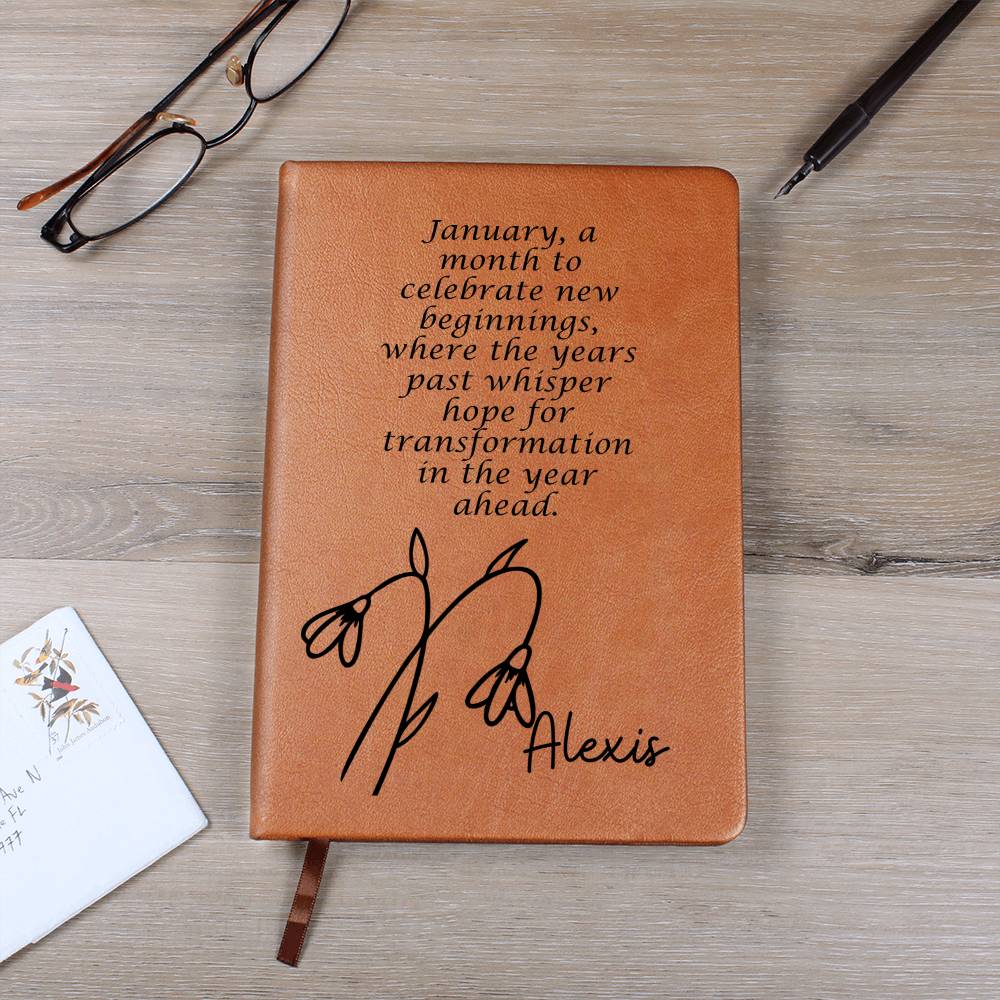 January, a
month to
celebrate new
beginnings,
where the years
past whisper
hope for
transformation
in the year
ahead.
Alexis
37
John James Audubon
Ave N
FL
977